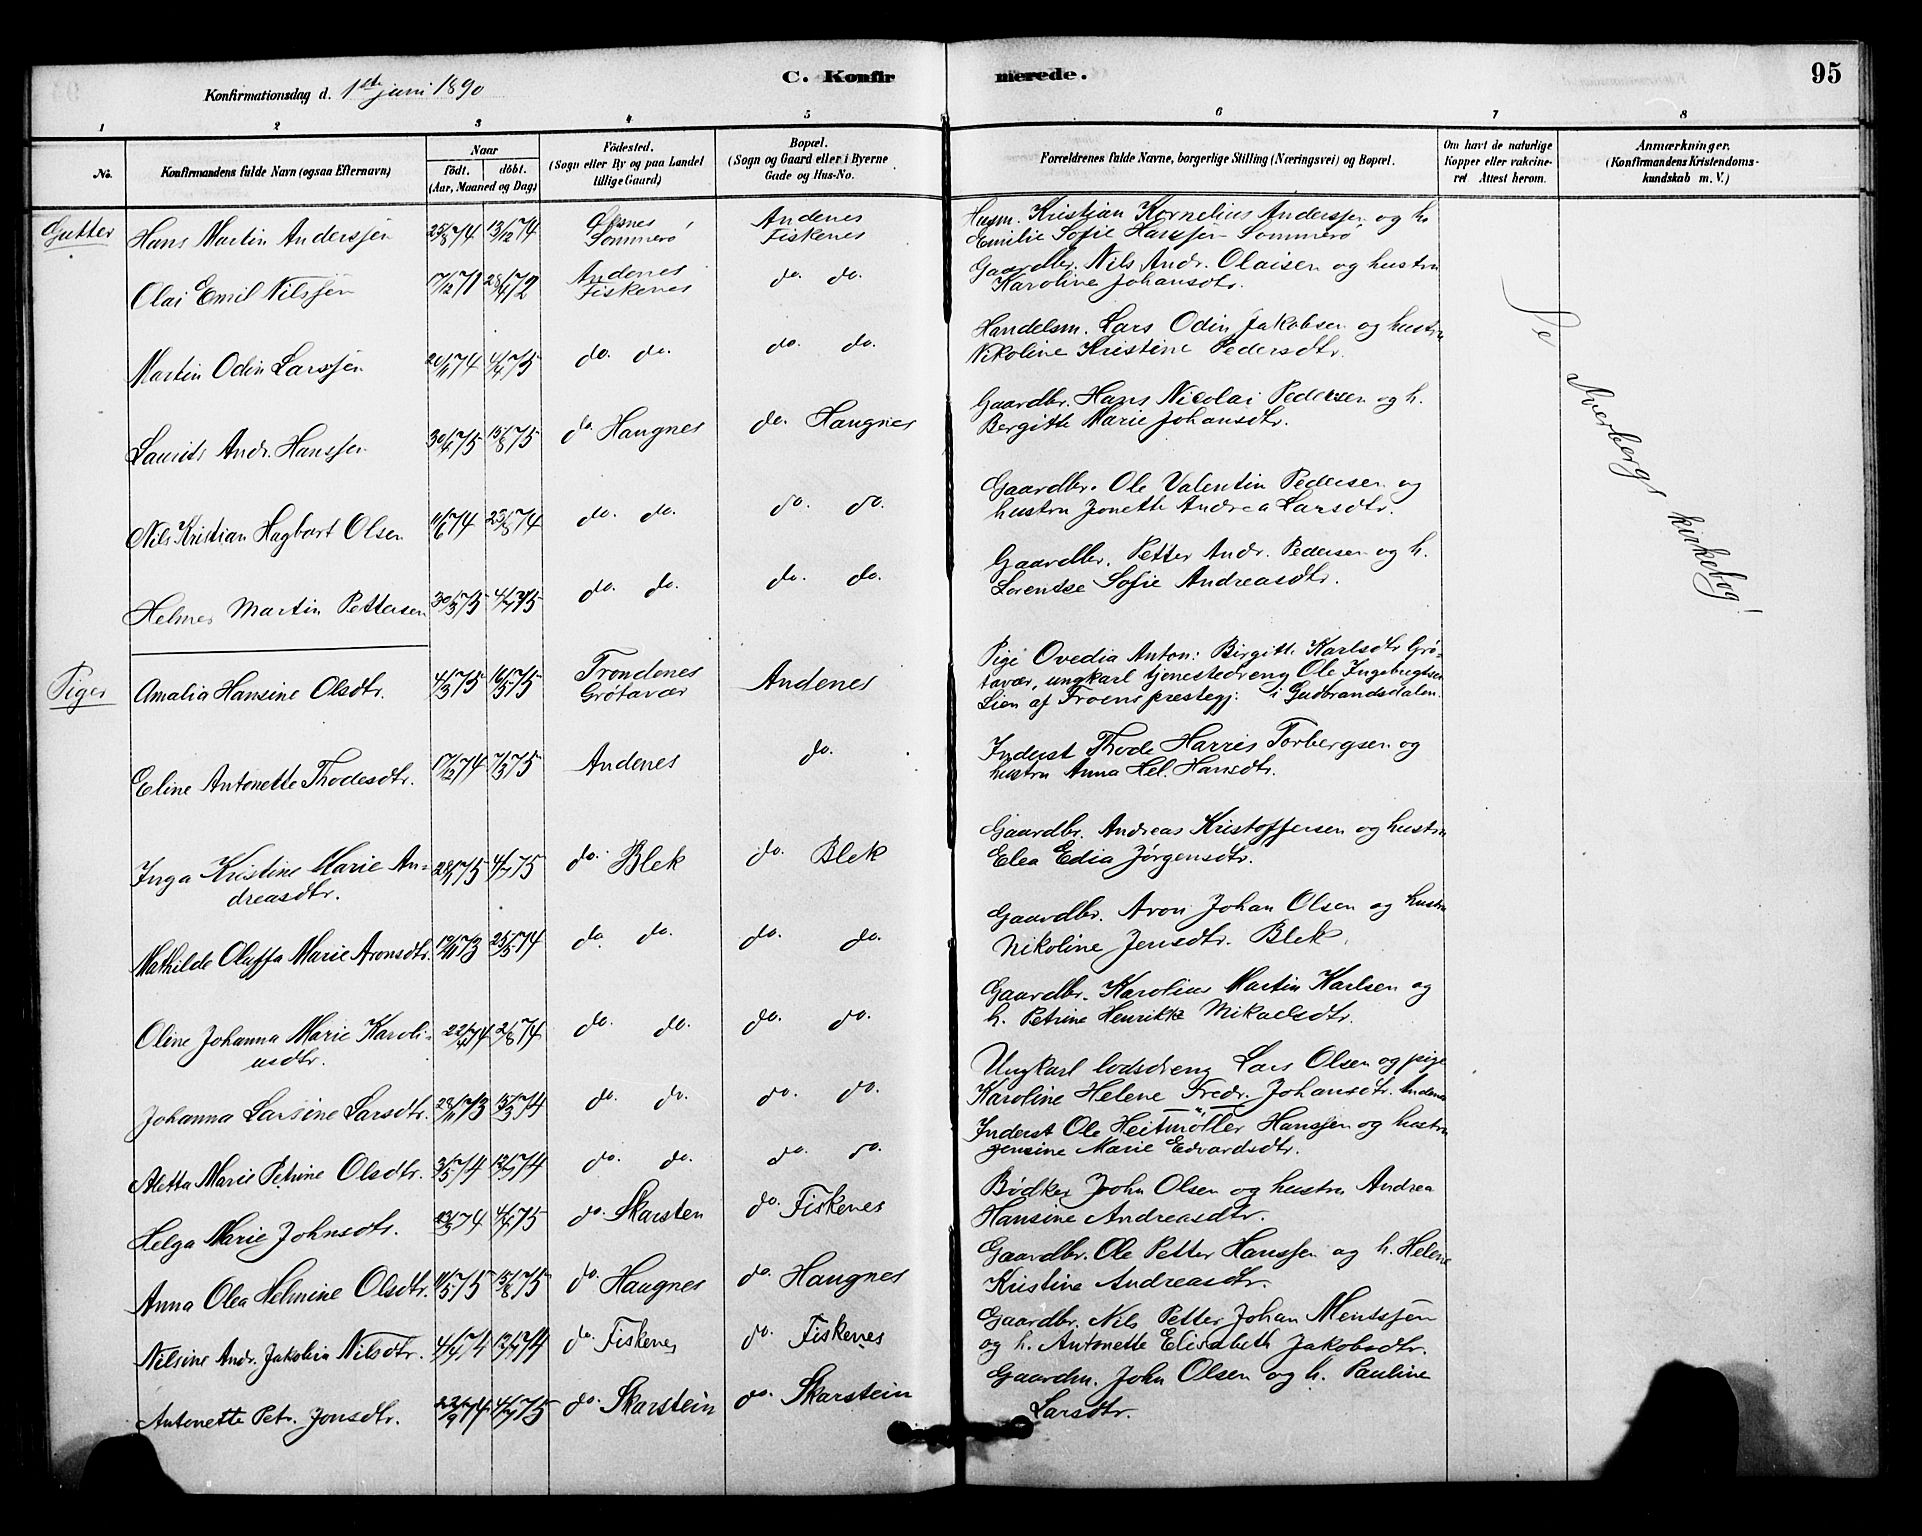 C. Konfirmerede.
95
Konfirmationsdag d. 1ste juni 1890
1 2 3 4 5 6 7 8
No.
Konfirmandens fulde Navn (ogsaa Efternavn)
Naar
födt. döbt.
(Aar, Maaned og Dag)
Födested.
(Sogn eller By og paa Landet
tillige Gaard)
Bopæl.
(Sogn og Gaard eller i Byerne
Gade og Hus-No.
Forældrenes fulde Navne, borgerlige Stilling (Næringsvei) og Bopæl.
Om havt de naturlige
Kopper eller vakcine-
ret Attest herom.
Anmærkninger.
(Konfirmandens Kristendoms-
kundskab m. V.)
Gutter
Hans Martin Anderssen 25/8 74 13/12 74 Sommerø Andenes Fiskenes Husm. Kristian Kornelius Anderssen og h.
Emilie Sofie Hanssen Sommerø
Olai Emil Nilssen 17/12 71 28/4 72 Andenes Fiskenes do. do. Gaardbr. Nils Andr. Olaisen og hustru
Karoline Johansdtr.
Martin Odin Larssen 20/11 74 4/4 75 do. do. do. do. Handelsm. Lars Odin Jakobsen og hustru
Nikoline Kristine Pedersdtr.
Laurits Andr. Hanssen 30/4 75 15/8 75 do. Haugnes do. Haugnes Gaardbr. Hans Nicolai Pedersen og h.
Bergitte Marie Johansdtr.
Nils Kristian Hagbart Olsen 11/6 74 23/8 74 do. do. do. do. Gaardbr. Ole Valentin Pedersen og
hustru Jonette Andrea Larsdtr.
Helmer Martin Pettersen 30/3 75 4/7 75 do. do. do. do. Gaardbr. Petter Andr. Pedersen og h.
Lorentse Sofie Andreasdtr.
Piger
Amalia Hansine Olsdtr. 4/3 75 16/5 75 Trondenes Grøtavær Andenes Pige Ovedia Anton: Birgitte Karlsdtr Grø-
tavær, ungkarl tjenestedreng Ole Ingebrigtsen
Lien af Froens præstegj: i Gudbrandsdalen.
Eline Antonette Thodesdtr. 17/12 74 7/3 75 Andenes do. Inderst Thode Harris Torbergsen og
hustru Anna Hel. Hansdtr.
Inga Kristine Marie An-
dreasdtr. 4/7 75 do. Blek do. Blek Gaardbr. Andreas Kristoffersen og hustru
Elea Edia Jørgensdtr.
Mathilde Oluffa Marie Aronsdtr. 19/11 73 25/5 74 do. do. do. do. Gaardbr. Aron Johan Olsen og hustru
Nikoline Jensdtr. Blek.
Oline Johanna Marie Karoli-
usdtr. 22/4 74 2/8 74 do. do. do. do. Gaardbr. Karolius Martin Karlsen og
h. Petrine Henrikke Mikaelsdtr.
Johanna Larsine Larsdtr. 28/11 73 15/3 74 do. do. do. do. Ungkarl lodsdreng Lars Olsen og pige
Karoline Helene Fredr. Johansdtr. Andenes
Aletta Marie Petrine Olsdtr. 3/5 74 12/7 74 do. do. do. do. Inderst Ole Heitmøller Hanssen og hustru
Jensine Marie Edvardsdtr.
Helga Marie Johnsdtr. 74 4/4 75 do. Skarsten do. Fiskenes Bødker John Olsen og hustru Andrea
Hansine Andreasdtr.
Anna Olea Helmine Olsdtr. 11/5 75 15/8 75 do. Haugnes do. Haugnes Gaardbr. Ole Petter Hanssen og h. Helene
Kristine Andreasdtr.
Nilsine Andr. Jakobia Nilsdtr. 4/4 74 12/7 74 do. Fiskenes do. Fiskenes Gaardbr. Nils Petter Johan Mentssen
og h. Antonette Elisabeth Jakobsdtr.
Antonette Petr. Jonsdtr. 22/9 74 4/4 75 do. Skarstein do. Skarstein Gaardm. John Olsen og h. Pauline
Larsdtr.
Se Averbergs kirkebog!